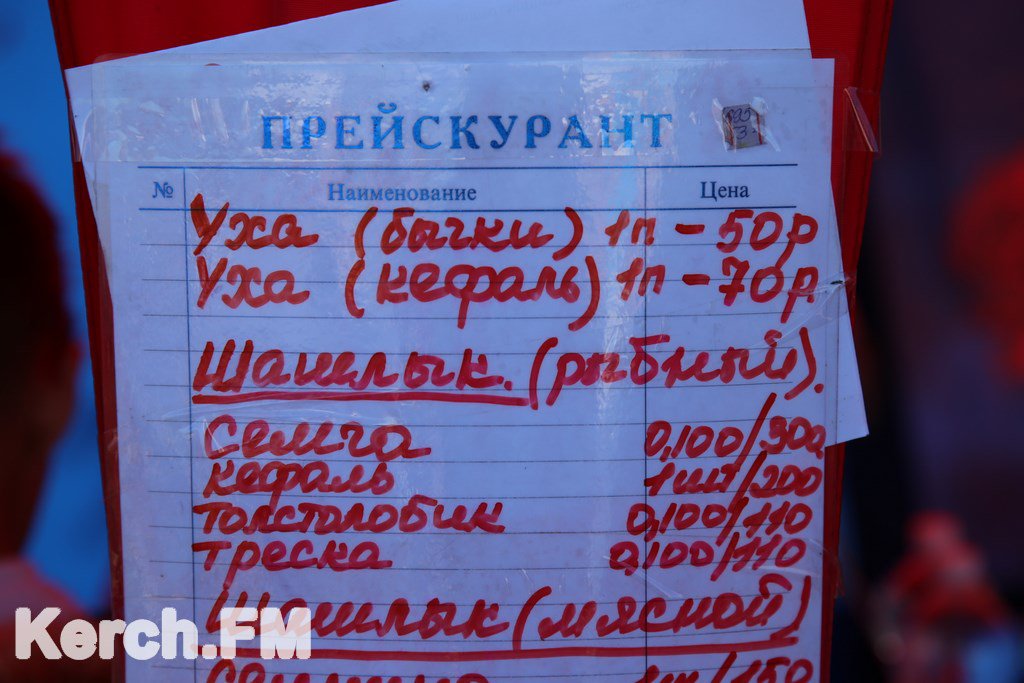 ПРЕЙСКУРАНТ
№ Наименование Цена
Уха (бычки) 1п - 50р
Уха (кефаль) 1п - 70р.
Шашлык. (рыбный).
Семга 0,100/300
кефаль 1шт/200
толстолобик 0,100/110
треска 0,100/110
Шашлык (мясной)
1п/150
Kerch.FM